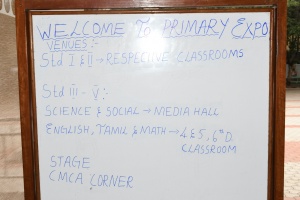 WELCOME To PRIMARY EXPO
VENUES :-
Std I & II → RESPECTIVE CLASSROOMS
Std III - V :-
SCIENCE & SOCIAL → MEDIA HALL
ENGLISH, TAMIL & MATH → 4 & 5, 6th D.
CLASSROOM
STAGE
CMCA CORNER